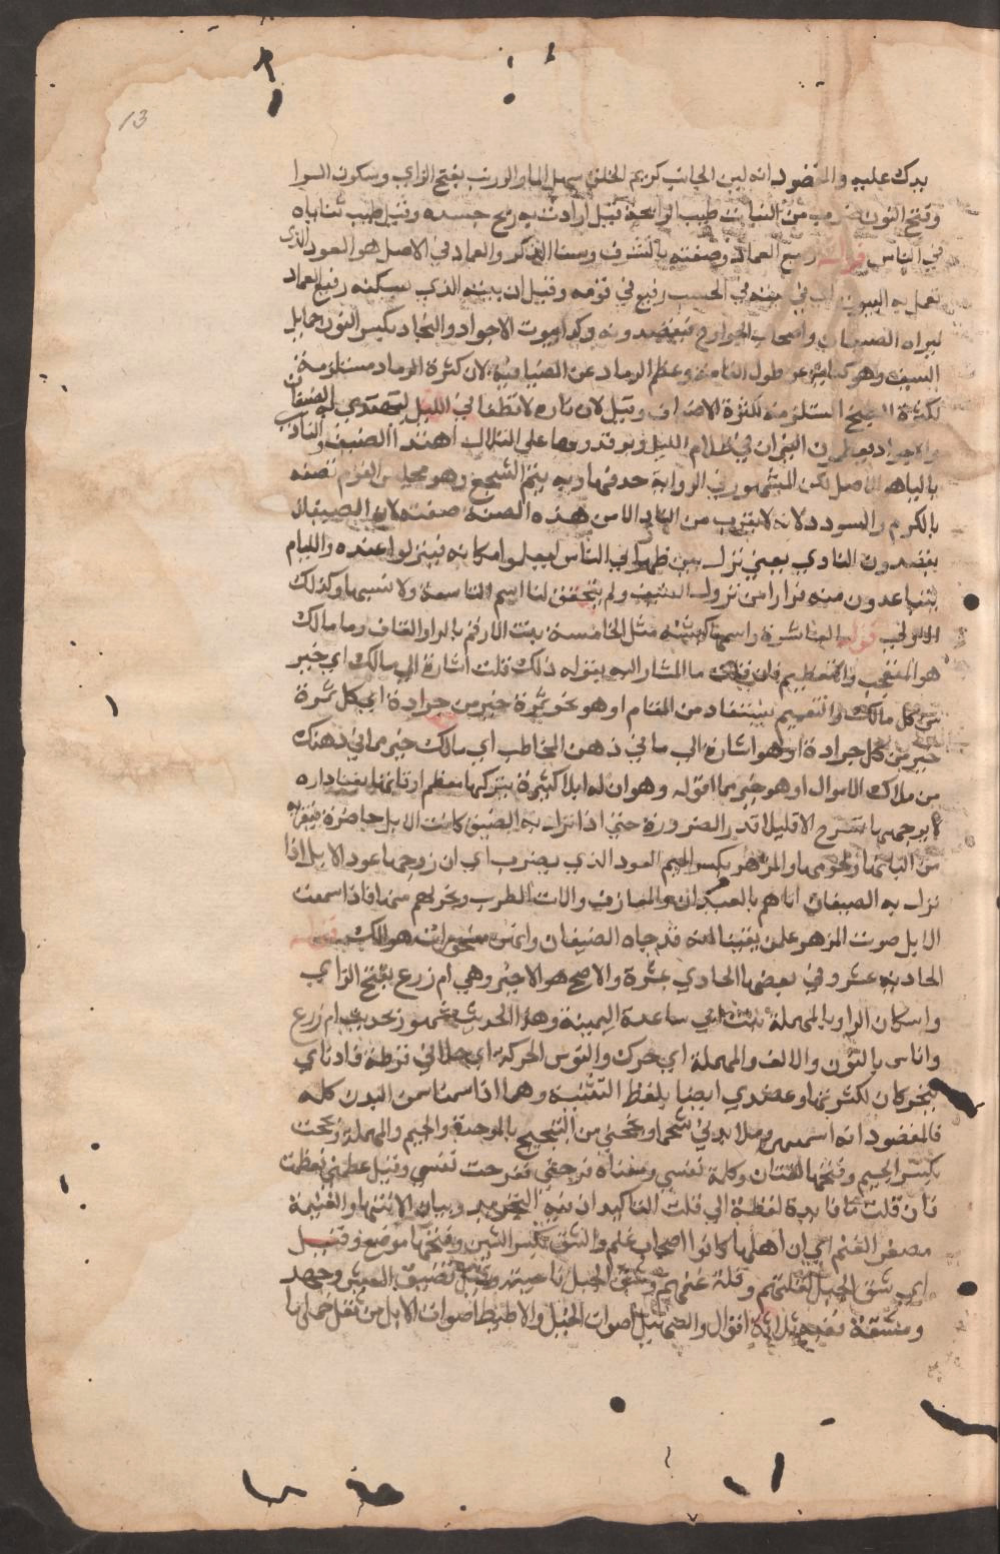 13
يدك عليه والمقصود انه لين الجانب كريم الخلق سهل الما والزرنب بفتح الزاي وسكون الرا
وفتح النون ضرب من النبات طيب الرائحة قيل ارادت به ريح جسده وقيل طيب ثنائه
في الناس قولها رفيع العماد وصفته بالشرف وسنا الذكر والعماد في الاصل هو العود الذي
تعمل به البيوت اي بيته في الحسب رفيع في قومه وقيل ان بيته الذي يسكنه رفيع العماد
ليراه الضيفان واصحاب الحوائج فيقصدونه وكذا بيوت الاجواد والنجاد بكسر النون حمايل
السيف وهو كناية عن طول القامة وعظم الرماد عن الضيافة لان كثرة الرماد مستلزمة
لكثرة الطبخ المستلزمة لكثرة الاضياف وقيل لان ناره لا تطفا في الليل ليهتدي الضيفان
والاجواد يعظمون النيران في ظلام الليل ويوقدونها على التلال اهتداا لضيف والنادي
بالياهو الاصل لكن المشهور في الرواية حذفها وبه يتم السجع وهو مجلس القوم تصفه
بالكرم والسودد لانه لا يقرب من النادي الا من هذه الصفة صفته لان الضيفان
يقصدون النادي يعني نزل بين ظهراني الناس ليعلموا مكانه فينزلوا عنده واللئام
يتباعدون منه فرارا من نزول الضيف ولم يتحقق لنا اسم التاسعة ولا نسبها وكذلك
الاولى قوله العاشرة واسمها كبشة مثل الخامسة بنت الارقم بالرا والقاف وما مالك
هو للتعجب والتعظيم فان قلت ما المشار اليه بقوله ذلك قلت اشارة الى مالك اي خير
من كل مالك والتعميم يستفاد من المقام او هو نحو تمرة خير من جرادة اي كل تمرة
خير من كل جرادة او هو اشارة الى ما في ذهن المخاطب اي مالك خير مما في ذهنك
من ملاك الاموال او هو خير مما اقوله وهو ان له ابلا كثيرة يتركها معظم اوقاتها بفنا داره
لا يوجهها تسرح الا قليلا قدر الضرورة حتى اذا نزل به الضيف كانت الابل حاضرة فيقريه
من البانها ولحومها والمزهر بكسر الميم العود الذي يضرب اي ان زوجها عود الابل اذا
نزل به الضيفان اتاهم بالعيدان والمعازف والات الطرب ونحر لهم منها فاذا سمعت
الابل صوت المزهر علمن يقينا انه قد جاه الضيفان وانهن منحورات هوالك قوله
الحادية عشر وفي بعضها الحادي عشرة والاصح هو الاخير وهي ام زرع بفتح الزاي
واسكان الرا وبالمهملة بنت ابي ساعدة اليمنية وهذا الحديث مشهور بحديث ام زرع
واناس بالنون والالف والمهملة اي حرك والنوس الحركة اي حلاني قرطة فاذناي
يتحركان لكثرتها وعضدي ايضا بلفظ التثنية وهما اذا سمنا سمن البدن كله
فالمقصود انه اسمنني وملا بدني شحما وبجحني من التبجيح بالموحدة والجيم والمهملة وبجحت
بكسر الجيم وفتحها لغتان وكلمة نفسي ومعناه فرحني ففرحت نفسي وقيل عظمني فعظمت
فان قلت ما فايدة لفظة الي قلت التاكيد اذ فيه التجريد وبيان الانتها والغنيمة
مصغر الغنم اي ان اهلها كانوا اصحاب غنم والشق بكسر الشين وفتحها موضع وقيل
اي بشق الجبل لقلتهم وقلة غنمهم وشق الجبل ناحيته وقيل تضييق العيش وجهد
ومشقة فهذه ثلاثة اقوال والصهيل اصوات الخيل والاطيط اصوات الابل من ثقل حملها